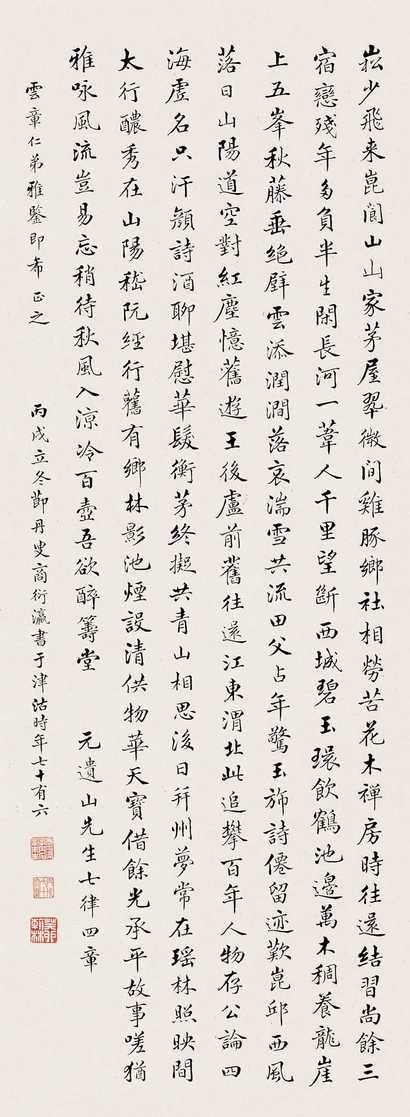 崧少飛來崑閬山山家茅屋翠微間雞豚鄉社相勞苦花木禪房時往還結習尚餘三
宿戀殘年多負半生閑長河一葦人千里望斷西城碧玉環飲鶴池邊萬木稠養龍崖
上五峯秋藤垂絕壁雲添潤澗落哀湍雪共流田父占年驚玉旆詩僊留迹歎崑邱西風
落日山陽道空對紅塵憶舊遊王後盧前舊往還江東渭北此追攀百年人物存公論四
海虛名只汗顏詩酒聊堪慰華髮衡茅終擬共青山相思後日并州夢常在瑶林照映間
太行醲秀在山陽嵇阮經行舊有鄉林影池煙設清供物華天寶借餘光承平故事嗟猶
雅咏風流豈易忘稍待秋風入涼冷百壺吾欲醉籌堂 元遺山先生七律四章
雲章仁弟雅鑒即希正之 丙戌立冬節丹叟商衍瀛書于津沽時年七十有六